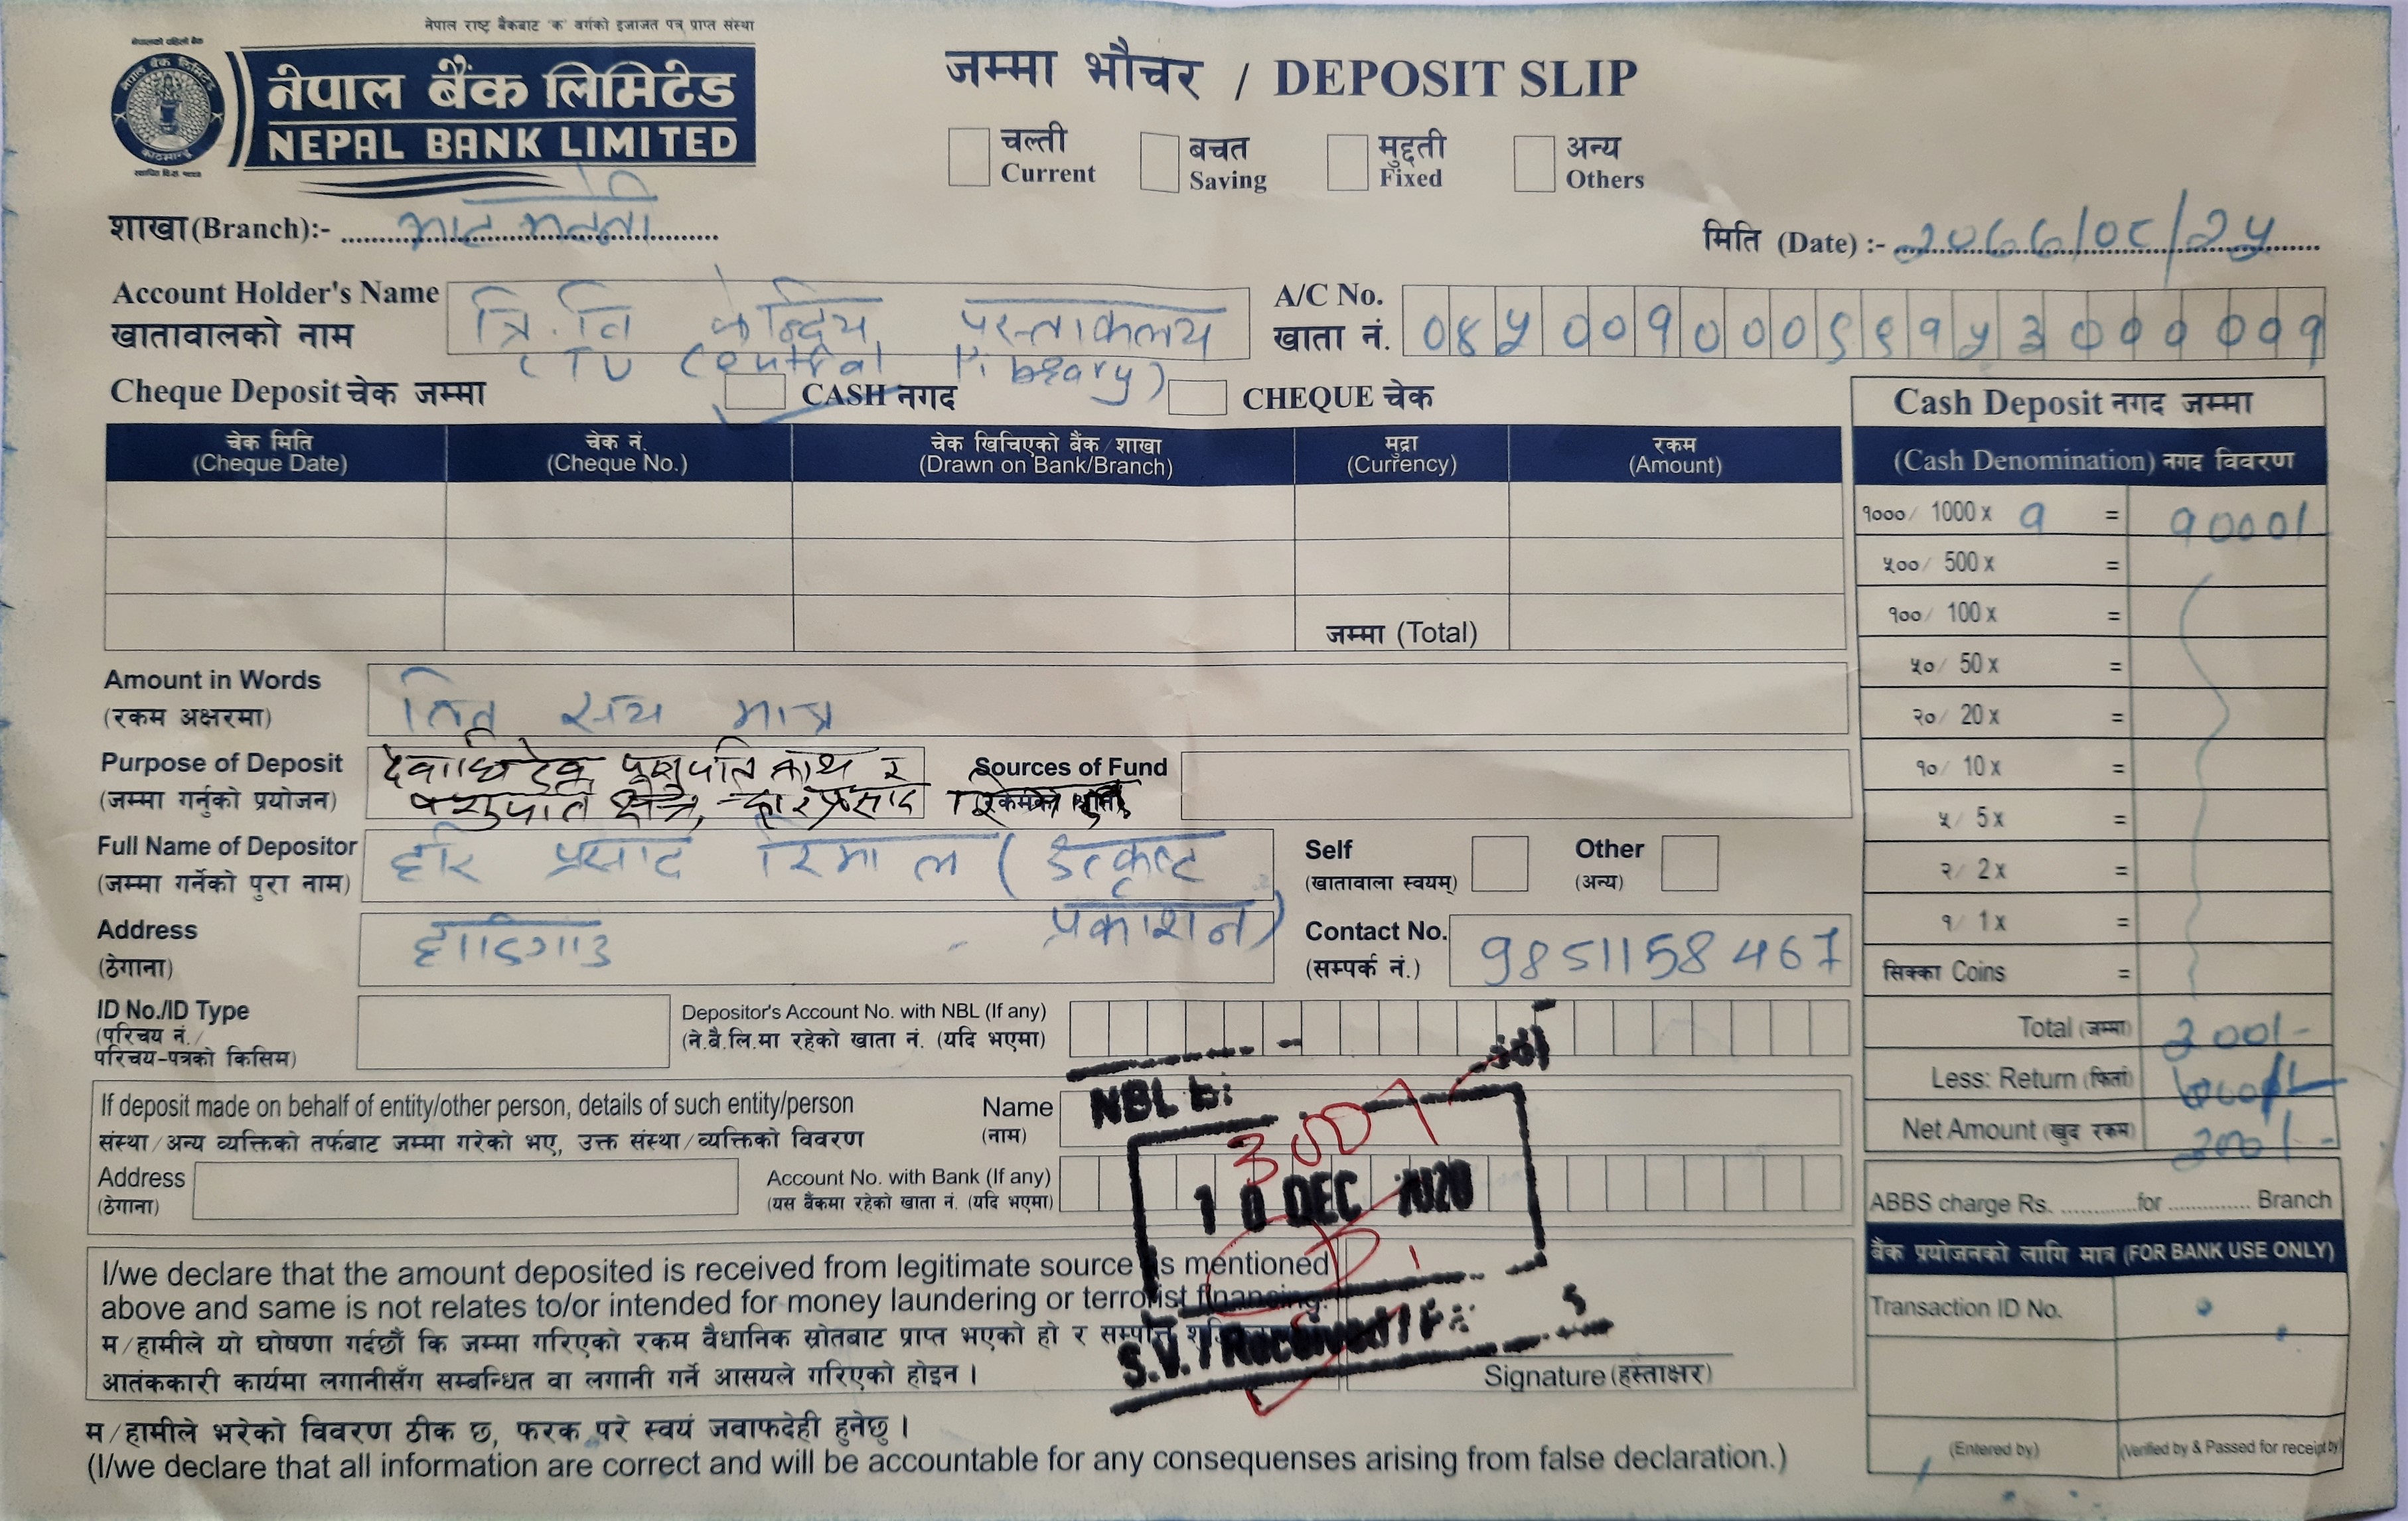 नेपाल राष्ट्र बैंकबाट 'क' वर्गको इजाजत पत्र प्राप्त संस्था
नेपालको पहिलो बैंक
नेपाल बैंक लिमिटेड
NEPAL BANK LIMITED
जम्मा भौचर / DEPOSIT SLIP
चल्ती
Current
बचत
Saving
मुद्दती
Fixed
अन्य
Others
शाखा (Branch):-
मिति (Date) :- २०७७/०८/२५
Account Holder's Name
खातावालाको नाम
त्रि.वि केन्द्रिय पुस्तकालय
(TU Central Library)
A/C No.
खाता नं.
०४५००१०००९९१५३००००० १
Cheque Deposit चेक जम्मा
CASH नगद
CHEQUE चेक
चेक मिति
(Cheque Date)
चेक नं.
(Cheque No.)
चेक खिचिएको बैंक/शाखा
(Drawn on Bank/Branch)
मुद्रा
(Currency)
रकम
(Amount)
जम्मा (Total)
Cash Deposit नगद जम्मा
(Cash Denomination) नगद विवरण
१०००/ 1000 x १ = १०००/
५००/ 500 x =
१००/ 100 x =
५०/ 50 x =
२०/ 20 x =
१०/ 10 x =
५/ 5 x =
२/ 2 x =
१/ 1 x =
सिक्का Coins =
Total (जम्मा) 300/-
Less: Return (फिर्ता)
Net Amount (खुद रकम) 300/-
Amount in Words
(रकम अक्षरमा)
तिन सय मात्र
Purpose of Deposit
(जम्मा गर्नुको प्रयोजन)
देवाधिदेव पशुपति नाथ र
पशुपति क्षेत्र, हरिप्रसाद
Sources of Fund
Full Name of Depositor
(जम्मा गर्नेको पुरा नाम)
हरि प्रसाद रिमाल (उत्कृष्ट
प्रकाशन)
Self
(खातावाला स्वयम्)
Other
(अन्य)
Address
(ठेगाना)
हाडिगाउ
Contact No.
(सम्पर्क नं.)
9851158467
ID No./ID Type
(परिचय नं./
परिचय-पत्रको किसिम)
Depositor's Account No. with NBL (If any)
(ने.बै.लि.मा रहेको खाता नं. (यदि भएमा)
If deposit made on behalf of entity/other person, details of such entity/person
संस्था/अन्य व्यक्तिको तर्फबाट जम्मा गरेको भए, उक्त संस्था/व्यक्तिको विवरण
Name
(नाम)
Address
(ठेगाना)
Account No. with Bank (If any)
(यस बैंकमा रहेको खाता नं. (यदि भएमा)
NBL
300/-
10 DEC 2020
S.V. / Received
ABBS charge Rs. ............for .............. Branch
बैंक प्रयोजनको लागि मात्र (FOR BANK USE ONLY)
Transaction ID No.
(Entered by)
(Verified by & Passed for receipt by)
I/we declare that the amount deposited is received from legitimate source is mentioned
above and same is not relates to/or intended for money laundering or terrorist financing.
म/हामीले यो घोषणा गर्दछौं कि जम्मा गरिएको रकम वैधानिक स्रोतबाट प्राप्त भएको हो र सम्पत्ति
आतंककारी कार्यमा लगानीसँग सम्बन्धित वा लगानी गर्ने आसयले गरिएको होइन ।
Signature (हस्ताक्षर)
म/हामीले भरेको विवरण ठीक छ, फरक परे स्वयं जवाफदेही हुनेछु ।
(I/we declare that all information are correct and will be accountable for any consequences arising from false declaration.)